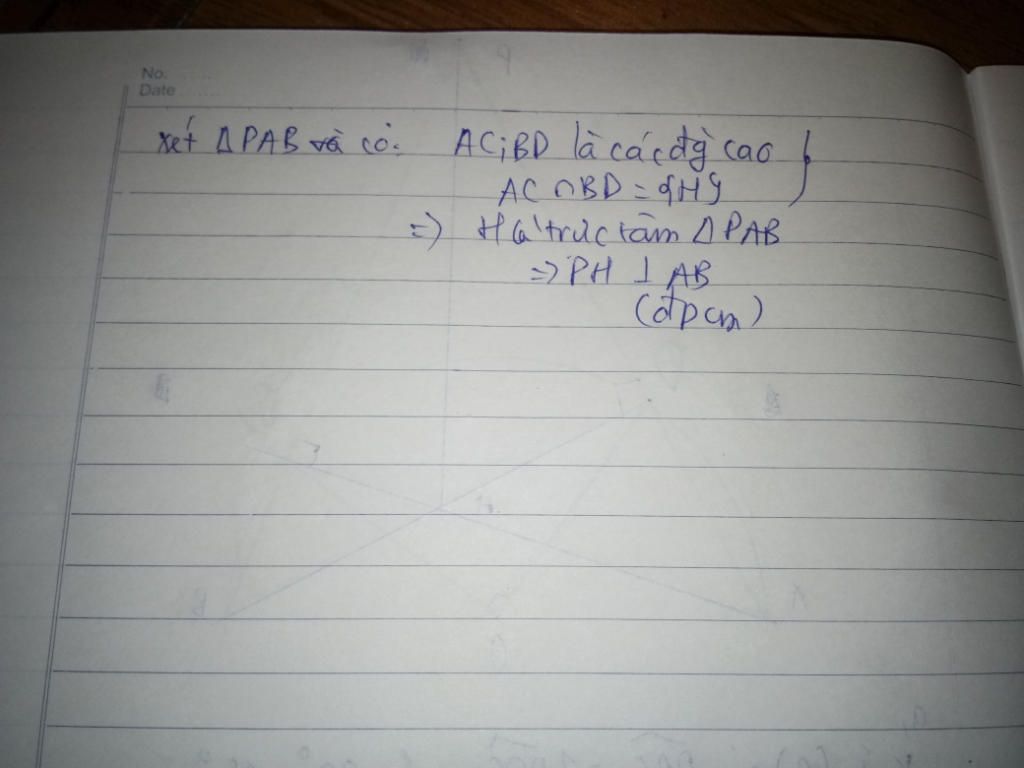 No.
Date
xét ΔPAB và có: AC; BD là các đg cao }
AC ∩ BD = {H}
=> H là trực tâm ΔPAB
=> PH ⊥ AB
(đpcm)